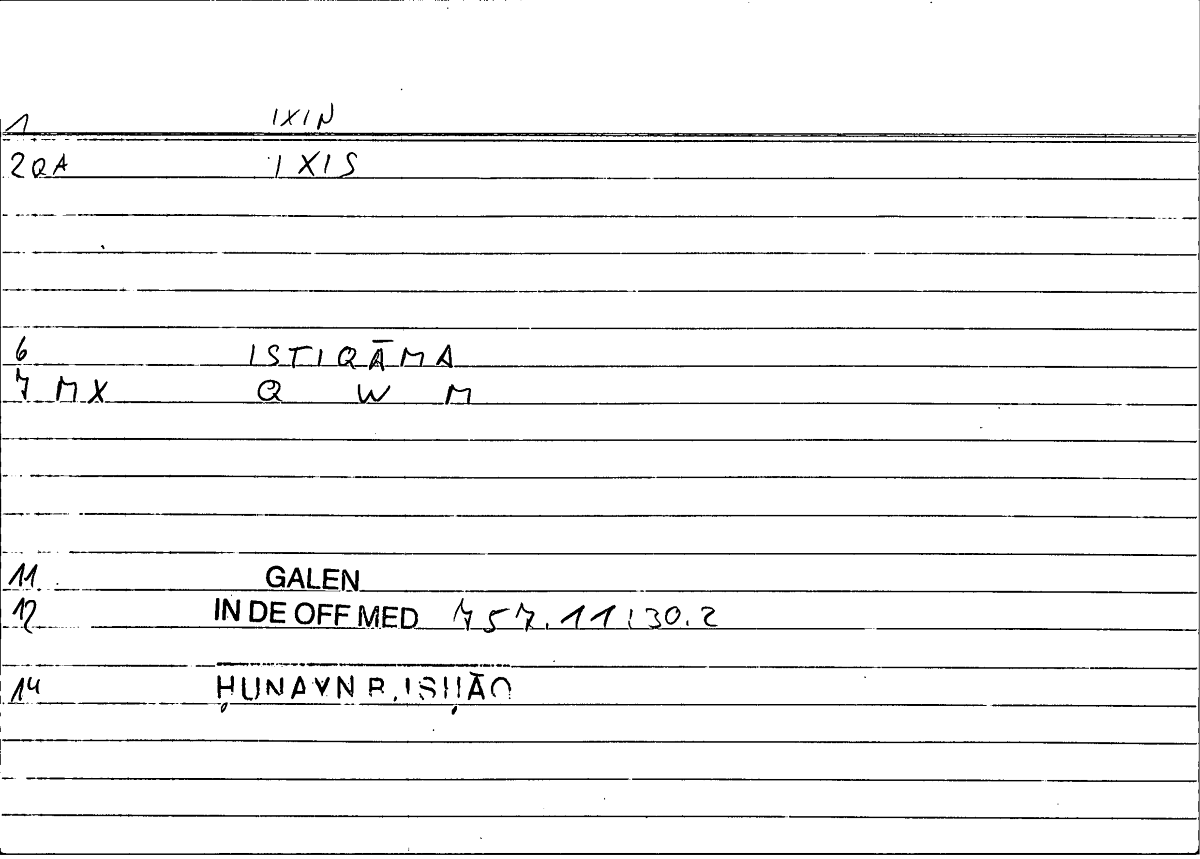 1 IXIN
2QA IXIS
6 ISTIQĀMA
7 MX Q W M
11 GALEN
12 IN DE OFF MED 757.11:30.2
14 ḤUNAYN B. ISḤĀQ